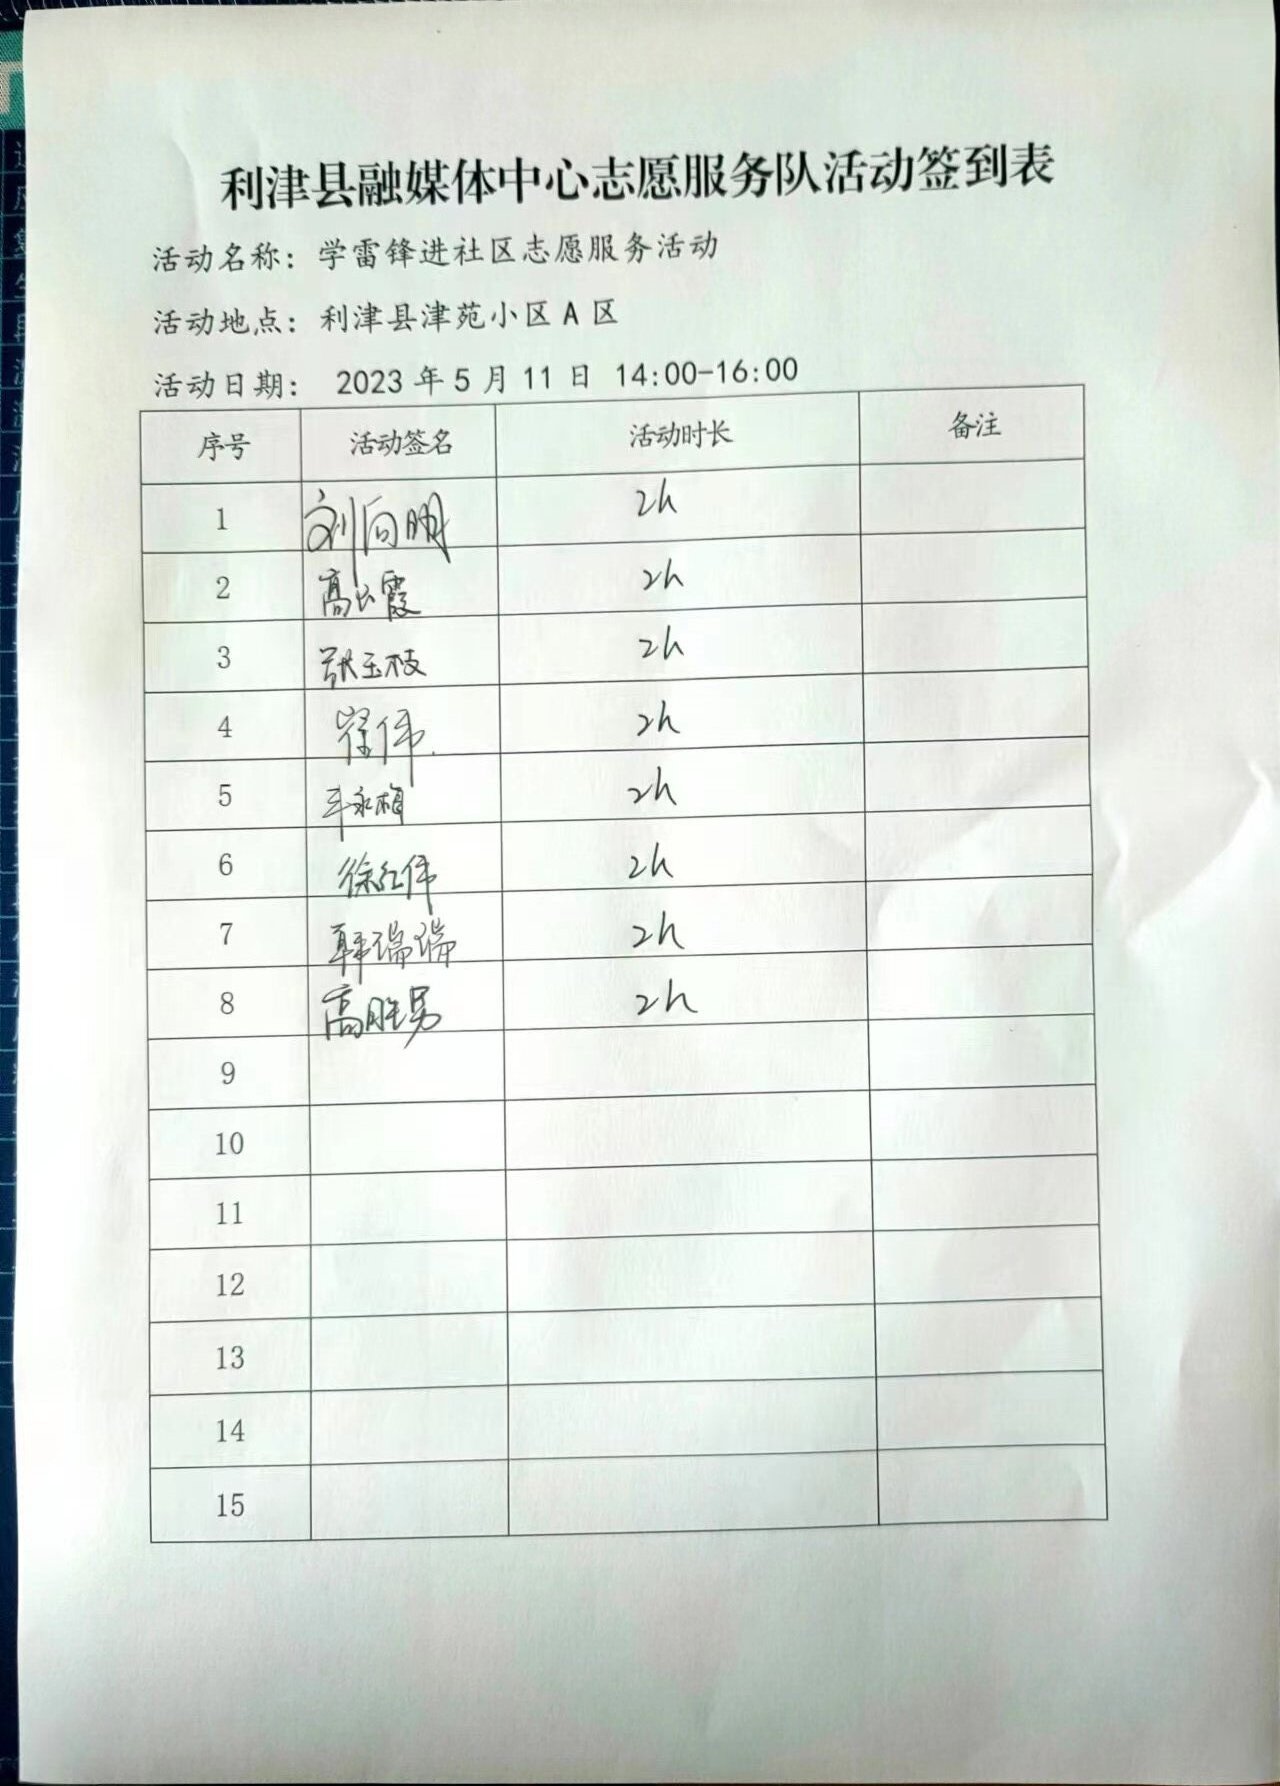 利津县融媒体中心志愿服务队活动签到表
活动名称：学雷锋进社区志愿服务活动
活动地点：利津县津苑小区 A 区
活动日期： 2023 年 5 月 11 日 14:00-16:00
序号 活动签名 活动时长 备注
1 刘向明 2h
2 高长霞 2h
3 张玉枝 2h
4 崔伟 2h
5 2h
6 徐红伟 2h
7 韩瑞瑞 2h
8 高胜男 2h
9
10
11
12
13
14
15